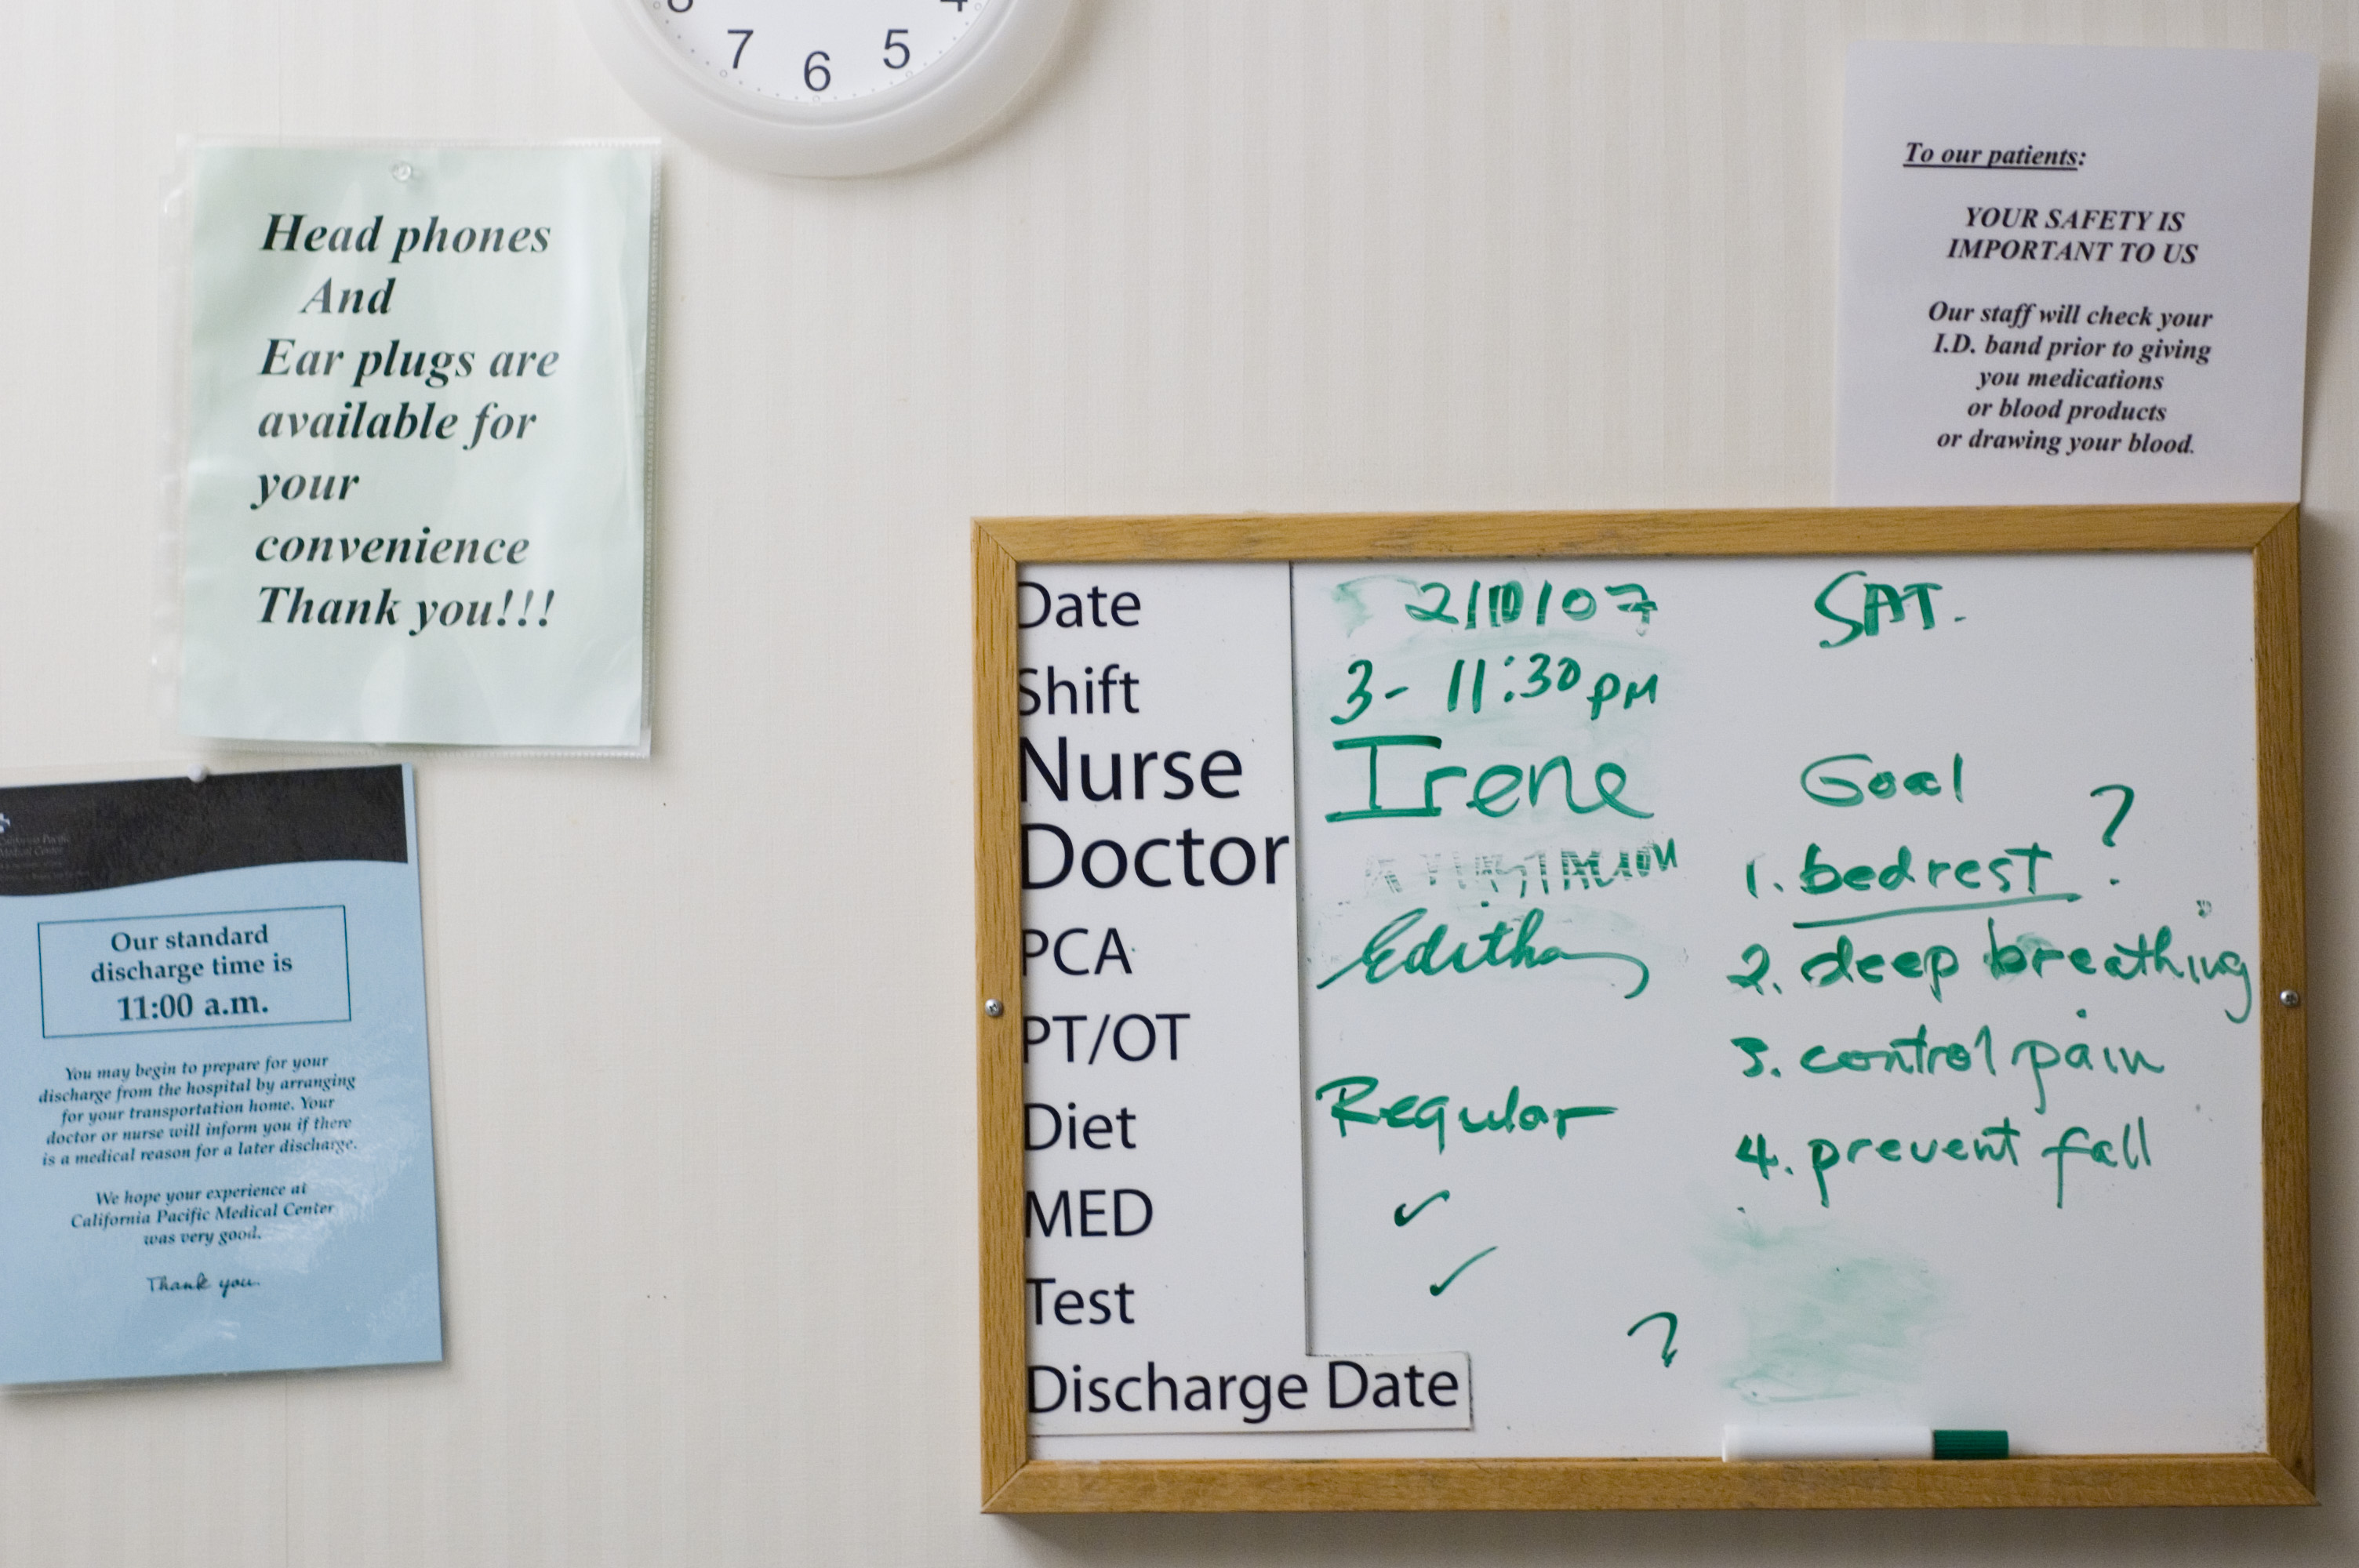 7 6 5
Head phones
And
Ear plugs are
available for
your
convenience
Thank you!!!
To our patients:
YOUR SAFETY IS
IMPORTANT TO US
Our staff will check your
I.D. band prior to giving
you medications
or blood products
or drawing your blood.
California Pacific
Medical Center
Our standard
discharge time is
11:00 a.m.
You may begin to prepare for your
discharge from the hospital by arranging
for your transportation home. Your
doctor or nurse will inform you if there
is a medical reason for a later discharge.
We hope your experience at
California Pacific Medical Center
was very good.
Thank you.
Date 2/10/07 SAT.
Shift 3- 11:30 PM
Nurse Irene
Doctor
PCA Editha
PT/OT
Diet Regular
MED ✓
Test ✓
Discharge Date ?
Goal
1. bedrest ?
2. deep breathing
3. control pain
4. prevent fall